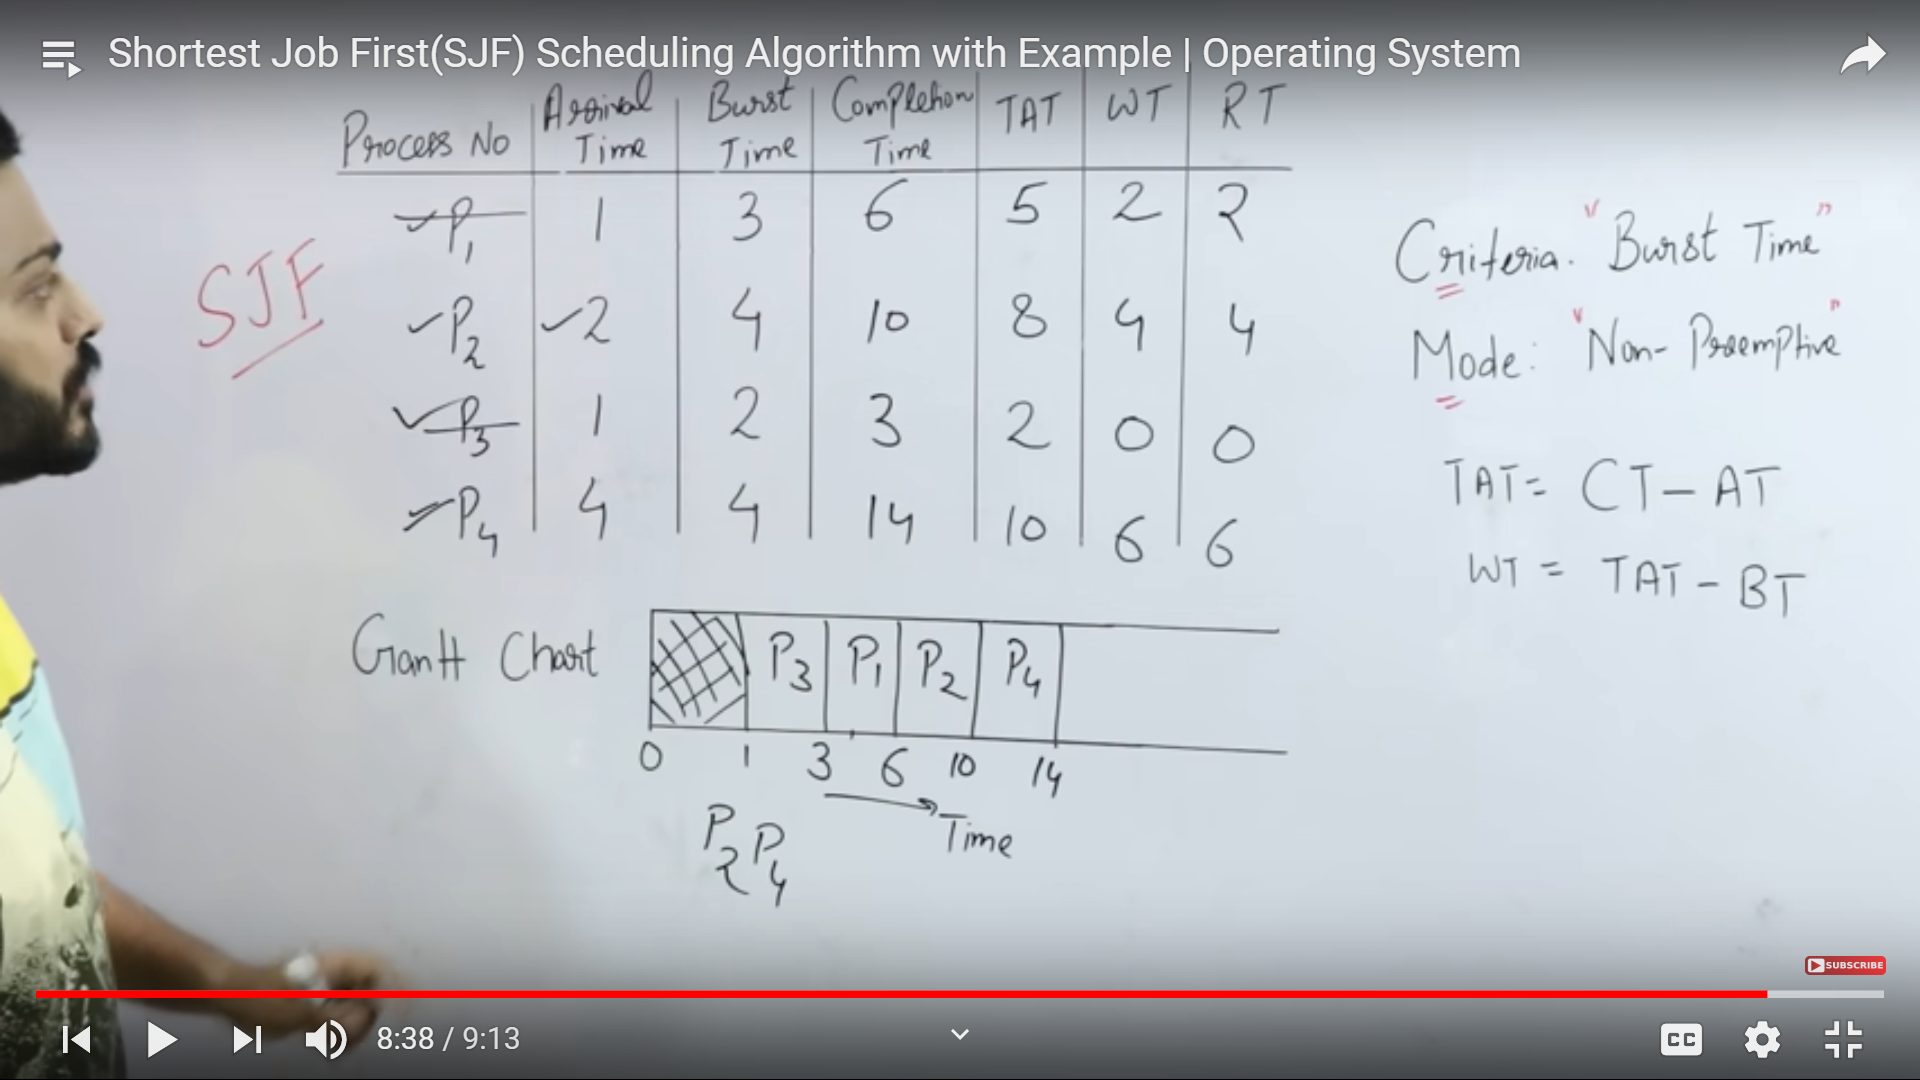 Shortest Job First(SJF) Scheduling Algorithm with Example | Operating System
Process No Arrival Time Burst Time Completion Time TAT WT RT
P1 1 3 6 5 2 2
P2 2 4 10 8 4 4
P3 1 2 3 2 0 0
P4 4 4 14 10 6 6
SJF
Criteria. "Burst Time"
Mode: "Non-Preemptive"
TAT = CT - AT
WT = TAT - BT
Gantt Chart P3 P1 P2 P4
0 1 3 6 10 14
Time
P2 P4
SUBSCRIBE
8:38 / 9:13
CC